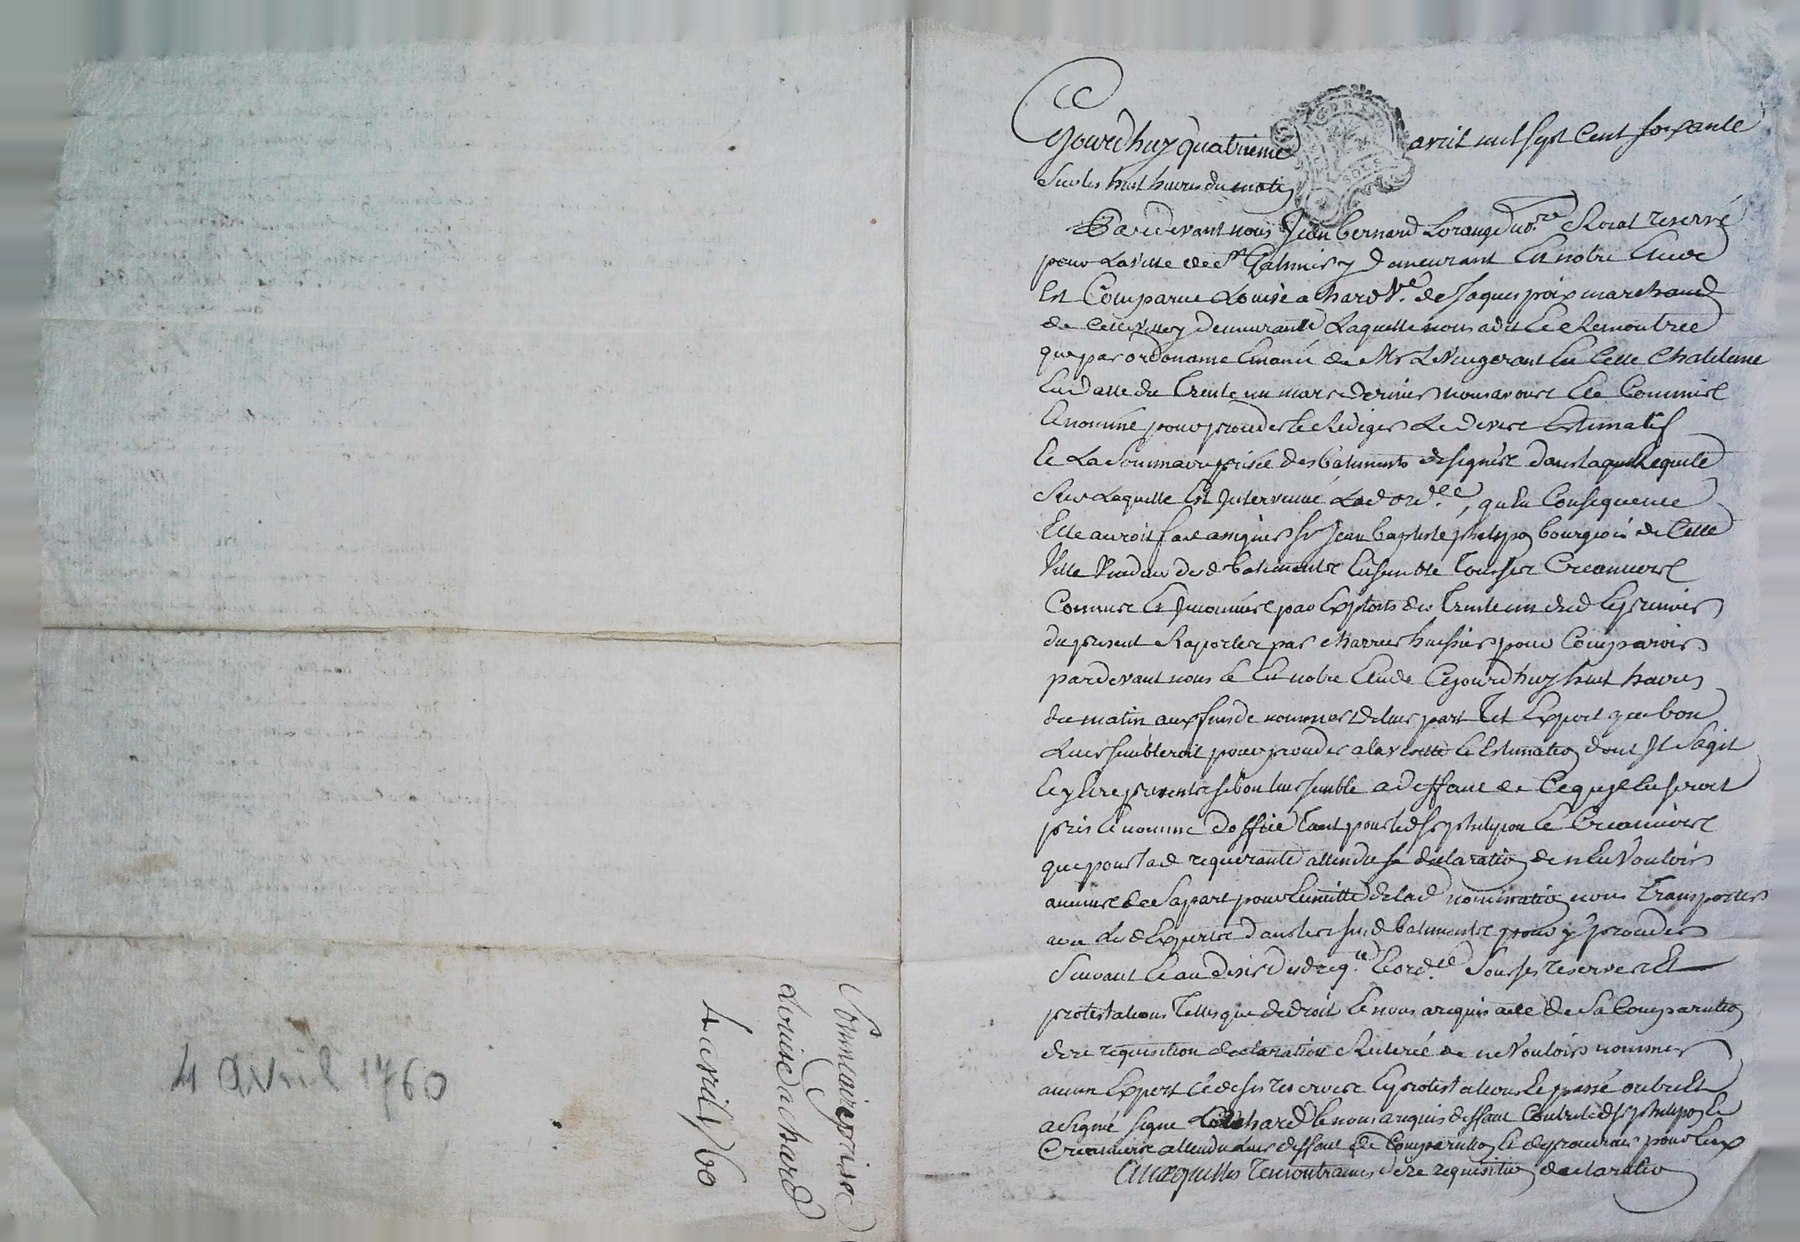 Cejourdhuy quatrieme avril mil sept Cent soixante
Sur les huit heures du matin
Pardevant nous Jean bernard Lorange no.re Royal reservé
pour La Ville de St Galmier y demeurant En notre Etude
Est Comparue Louise achard Ve. de Jaques poix marchand
de cette ville y demeurante Laquelle nous a dit Et Remontrée
que par ordonance Emanée de Mr Le Vingerant En Cette Chatelenie
En datte du Trente un mars dernier nous avons Eté Commis
Et nommé pour proceder Et Rediger Le devis Estimatif
Et La Sommaire prisée des batiments designés dans laquelle
Sur Laquelle Est Intervenue Lad. ord.ce, qu'En Consequence
Elle auroit fait assigner Sr Jean baptiste philipon bourgeois de Cette
Ville Vendeur desd. batiments Ensemble Tous ses Creanciers
Connus Et Inconnus par Exploits du Trente un dud.
du present Raportés par charrer huissier pour Comparoir
pardevant nous Et En notre Etude Cejourdhuy huit heures
du matin aux fins de nommer de leur part Tel Expert que bon
Leur sembleroit pour proceder a la visitte Et Estimation dont Il Sagit
Et y Etre presents si bon leur semble a deffaut de Ce quil En seroit
pris Et nommé doffice tant pour led. Sr philipon Et Creanciers
que pour lad. requerante attendu sa declaration de n'En Vouloir
aucuns de Sa part pour Ensuitte de lad. nomination nous Transporter
avec Lesd. Experts dans les susd. batiments pour y proceder
Suivant Et au desir desd. req.te Et ord.ce Sous ses reserves Et
protestations Telles que de droit Et nous a requis acte de Sa Comparution
dire requisition declaration Reiterée de ne Vouloir nommer
aucun Expert de ses reserves Et protestations Et persé outre Et
a Signé signé L. achard Et nous a requis deffaut Contre led. Sr philipon Et
Creanciers attendu leur deffaut de Comparution Et de procureur pour Eux
Auxquelles remontrances dire requisition declaration
Sommaire prisée
Louise achard
4 avril 1760
4 Avril 1760